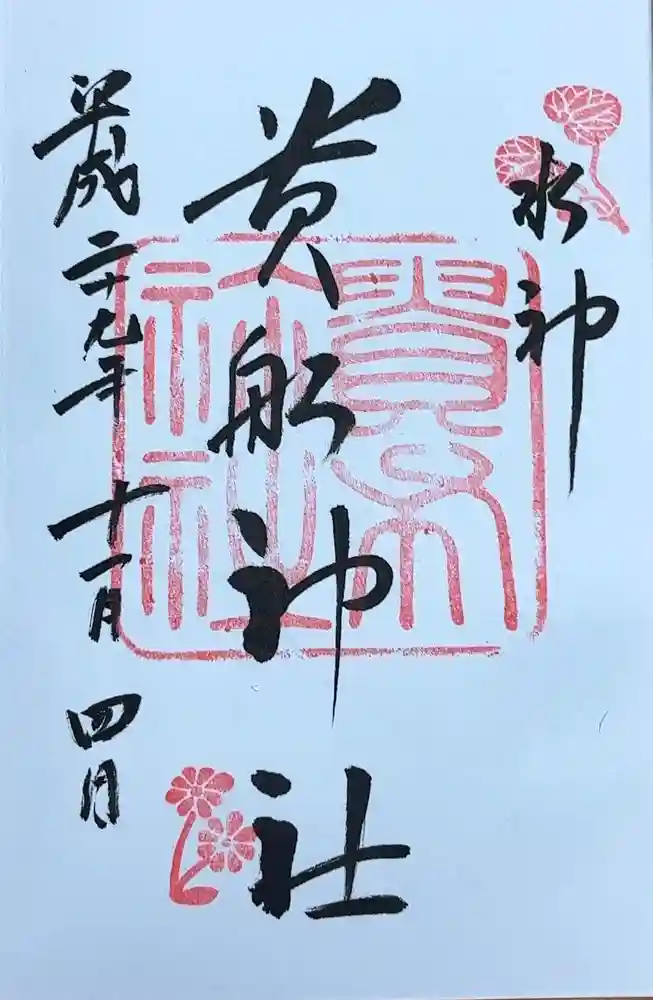 水神
貴布祢社
貴船神社
平成二十九年十一月四日